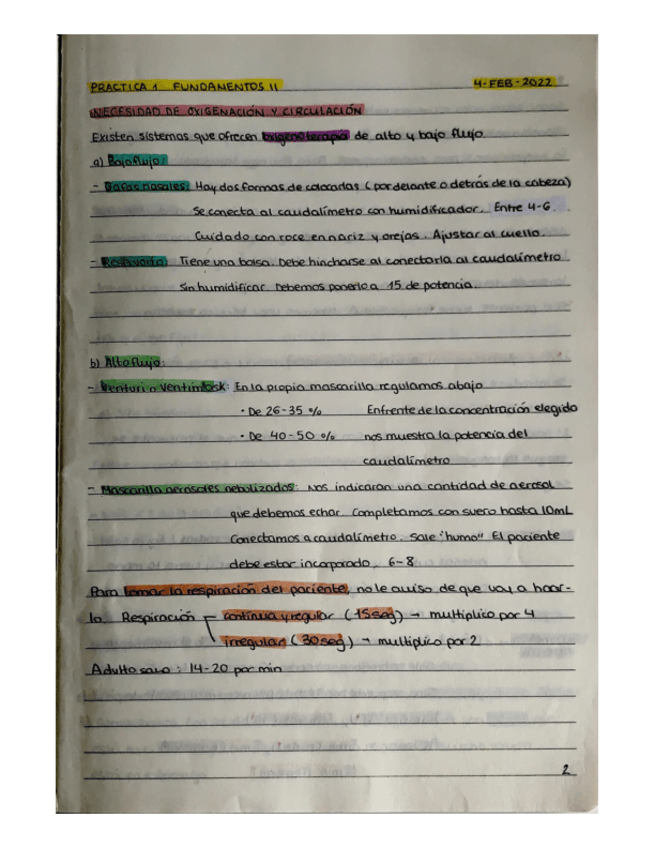 PRACTICA 1 FUNDAMENTOS II 4-FEB-2022
NECESIDAD DE OXIGENACIÓN Y CIRCULACIÓN
Existen sistemas que ofrecen oxigenoterapia de alto y bajo flujo
a) Bajo flujo:
- Gafas nasales: Hay dos formas de colocarlas (por delante o detrás de la cabeza)
Se conecta al caudalímetro con humidificador. Entre 4-6.
Cuidado con roce en nariz y orejas. Ajustar al cuello.
- Reservorio: Tiene una bolsa. Debe hincharse al conectarla al caudalímetro
Sin humidificar. Debemos ponerlo a 15 de potencia.
b) Alto flujo:
- Venturi o Ventimask: En la propia mascarilla regulamos abajo
· De 26-35 % Enfrente de la concentración elegida
· De 40-50 % nos muestra la potencia del
caudalímetro
- Mascarilla aerosoles nebulizados: Nos indicaran una cantidad de aerosol
que debemos echar. Completamos con suero hasta 10mL
Conectamos a caudalímetro. Sale "humo" El paciente
debe estar incorporado. 6-8
Para tomar la respiración del paciente, no le aviso de que voy a hacer-
lo. Respiración continua y regular (15 seg) → multiplico por 4
irregular (30 seg) → multiplico por 2
Adulto sano: 14-20 por min
2